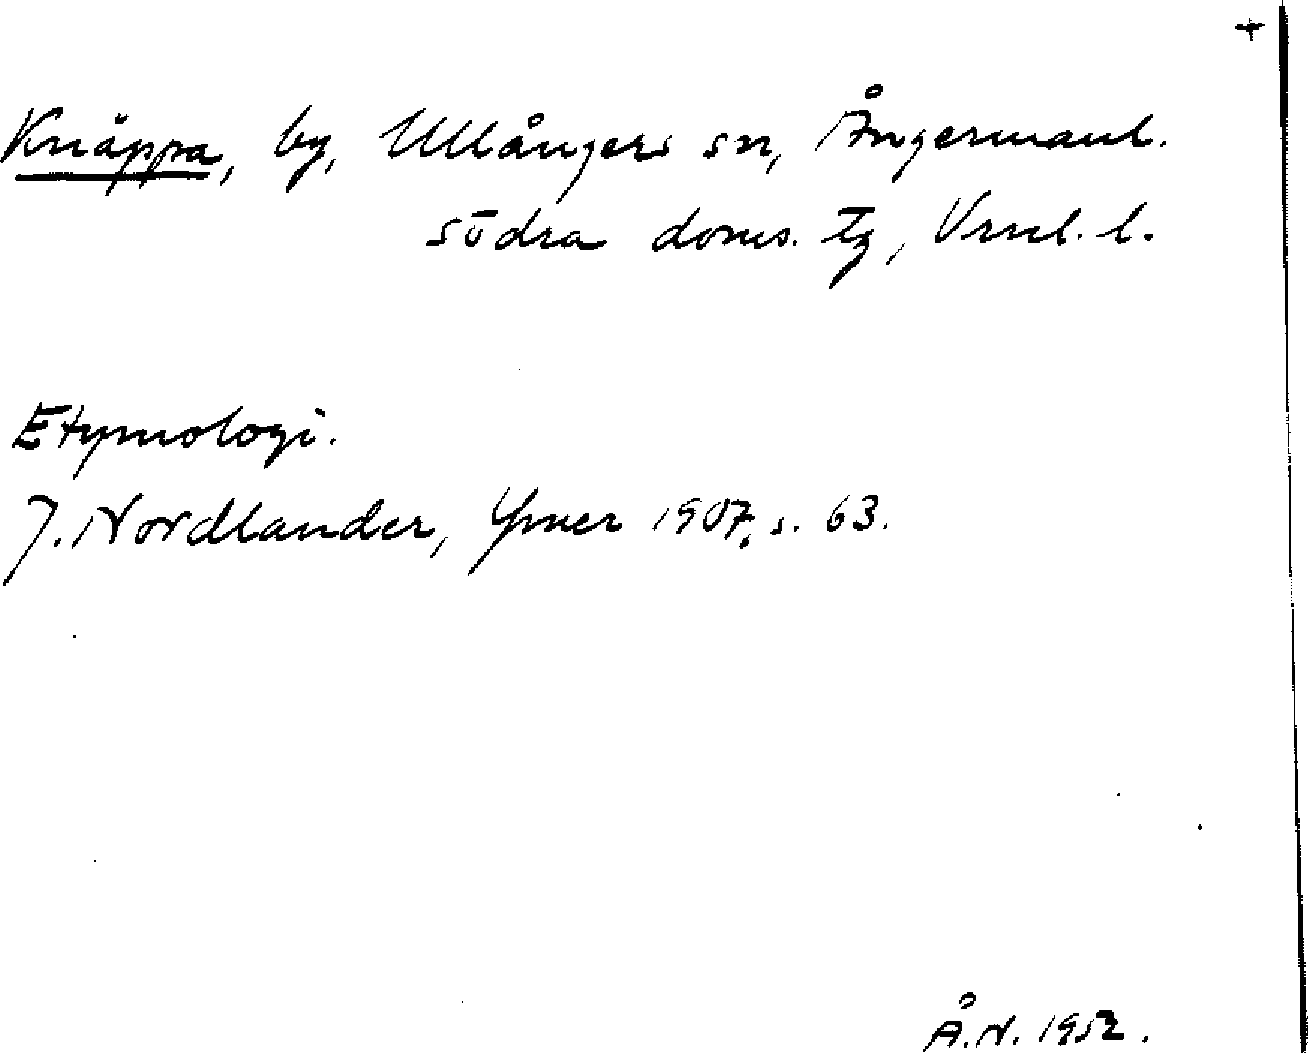 +
Knäppa, by, Ullångers sn, Ångermanl.
södra doms. tg, Vrnl. l.
Etymologi.
J. Nordlander, Ymer 1907, s. 63.
Å.N. 1952.